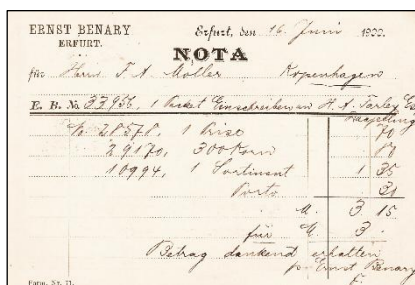 ERNST BENARY
ERFURT.
Erfurt, den 16 Juni 1900.
NOTA
für Herrn F. A. Moller Kopenhagen
E. B. No. 33956, 1 Packet Einschreiben an H. A.
No 28578, 1 Prise 70
29170, 300 Korn 80
10994, 1 Sortiment 1 35
Porto
M. 3 15
für M. 3
Betrag dankend erhalten
Ernst Benary
Form. Nr. 71.